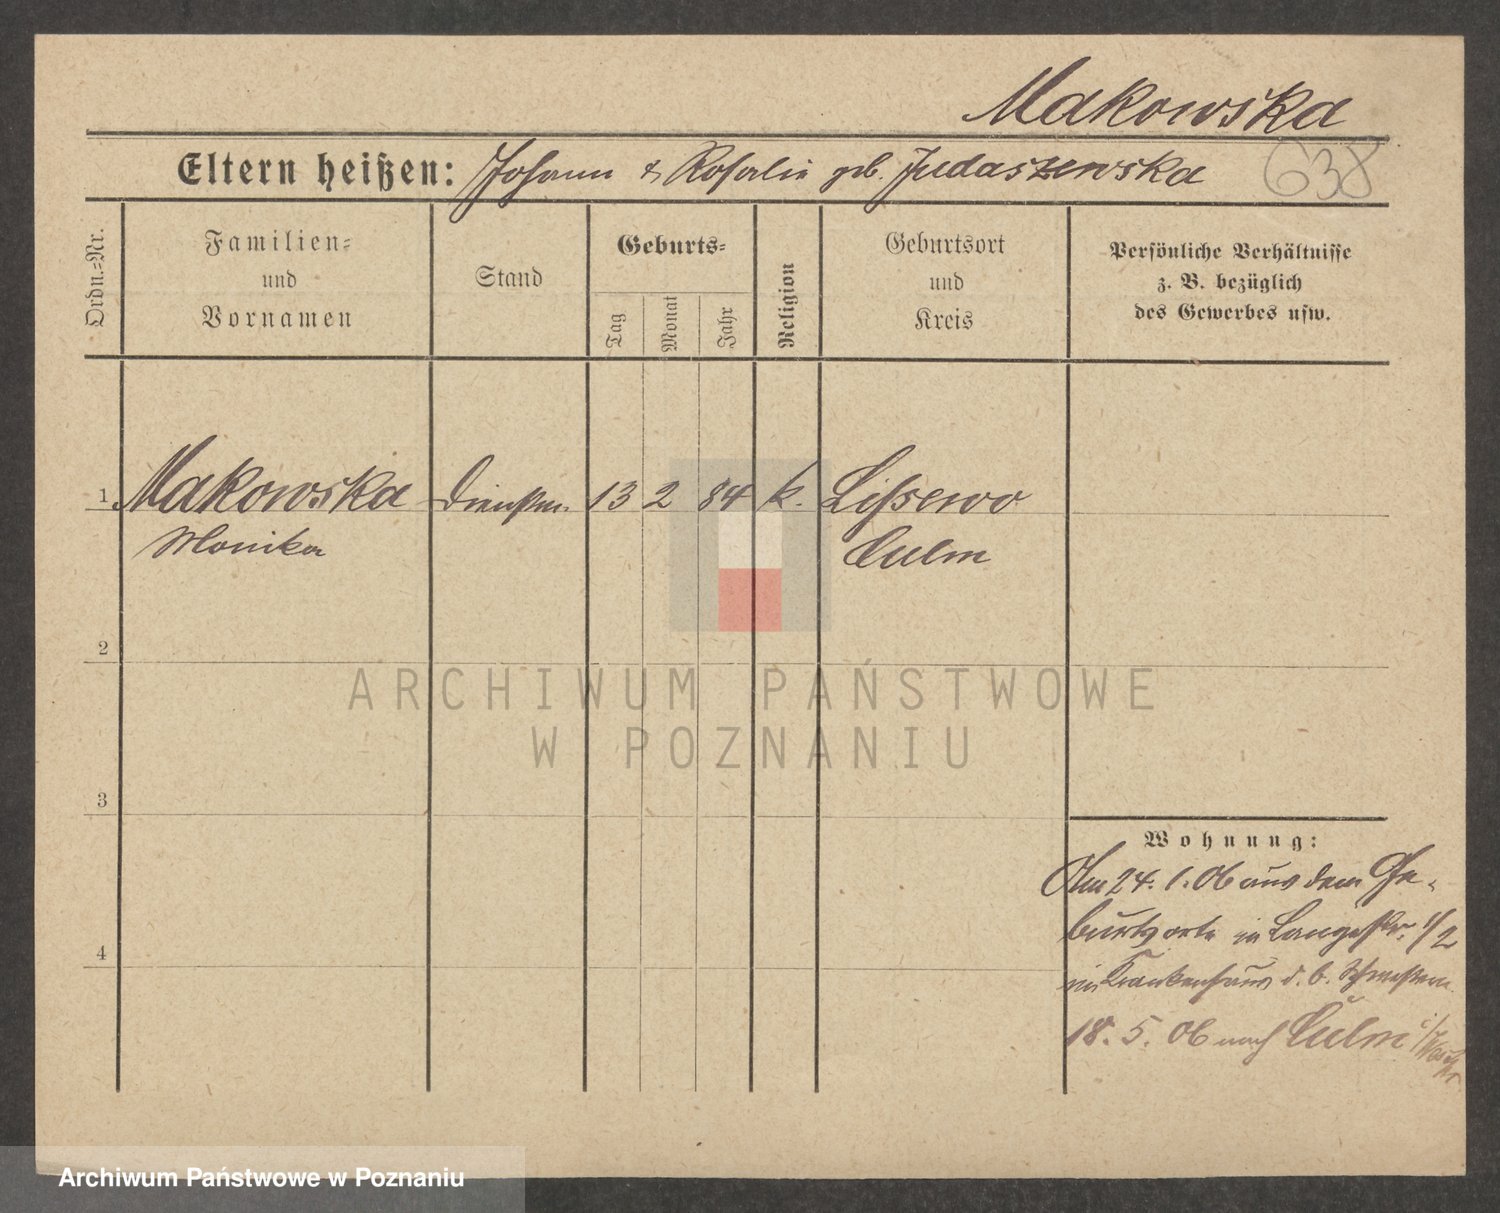 Makowska
638
Eltern heißen: Johann & Rosalie geb. Judaszewska
Ordn.-Nr.
Familien-
und
Vornamen
Stand
Geburts-
Tag
Monat
Jahr
Religion
Geburtsort
und
Kreis
Persönliche Verhältnisse
z. B. bezüglich
des Gewerbes usw.
1 Makowska Dienstm. 13 2 84 k. Lissewo
Monika Culm
2
ARCHIWUM PAŃSTWOWE
W POZNANIU
3
Wohnung:
Am 24. 1. 06 aus dem Ge-
burtsorte in Langestr. 1/2
4
im Krankenhaus d. b.
18. 5. 06 nach Culm
Archiwum Państwowe w Poznaniu